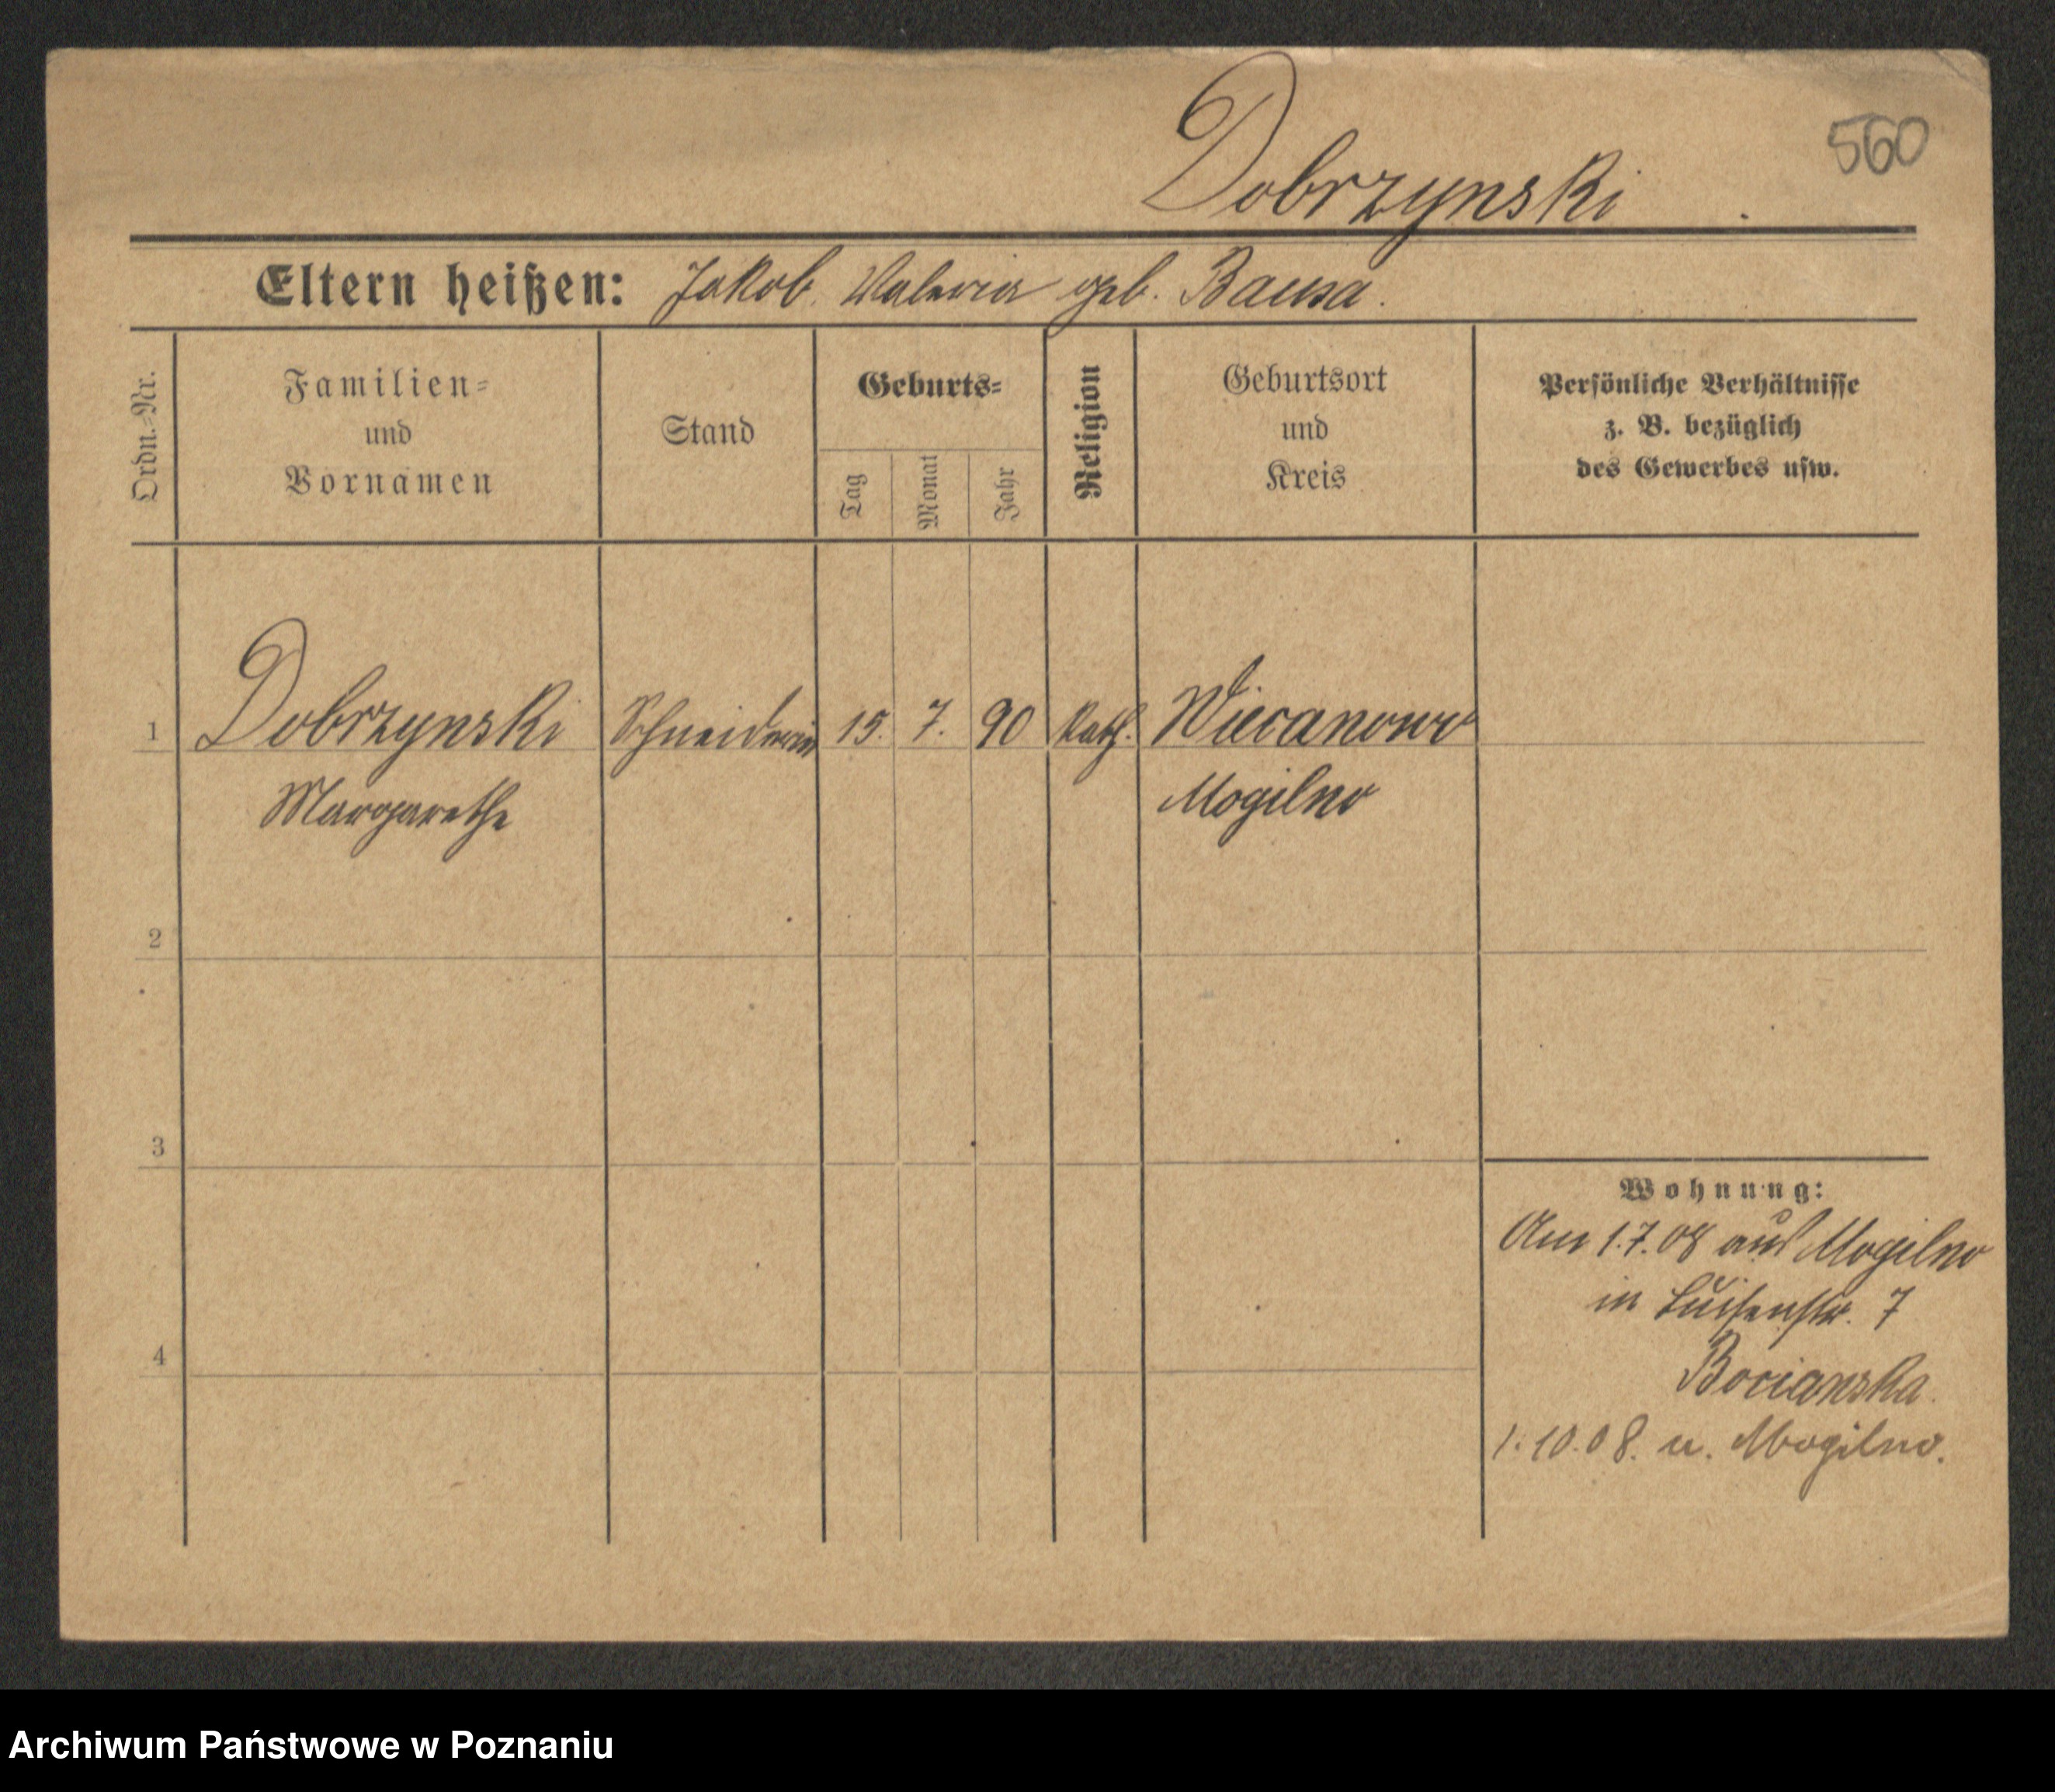 560
Dobrzynski
Eltern heißen: Jakob. Valeria geb. Bausa.
Ordn.-Nr.
Familien-
und
Vornamen
Stand
Geburts-
Tag
Monat
Jahr
Religion
Geburtsort
und
Kreis
Persönliche Verhältnisse
z. B. bezüglich
des Gewerbes usw.
1 Dobrzynski Schneiderin 15. 7. 90 kath. Wiecanowo
Margarethe Mogilno
2
3
4
Wohnung:
Am 1.7.08 aus Mogilno
in Luisenstr. 7
Bocianska.
1.10.08. n. Mogilno.
Archiwum Państwowe w Poznaniu